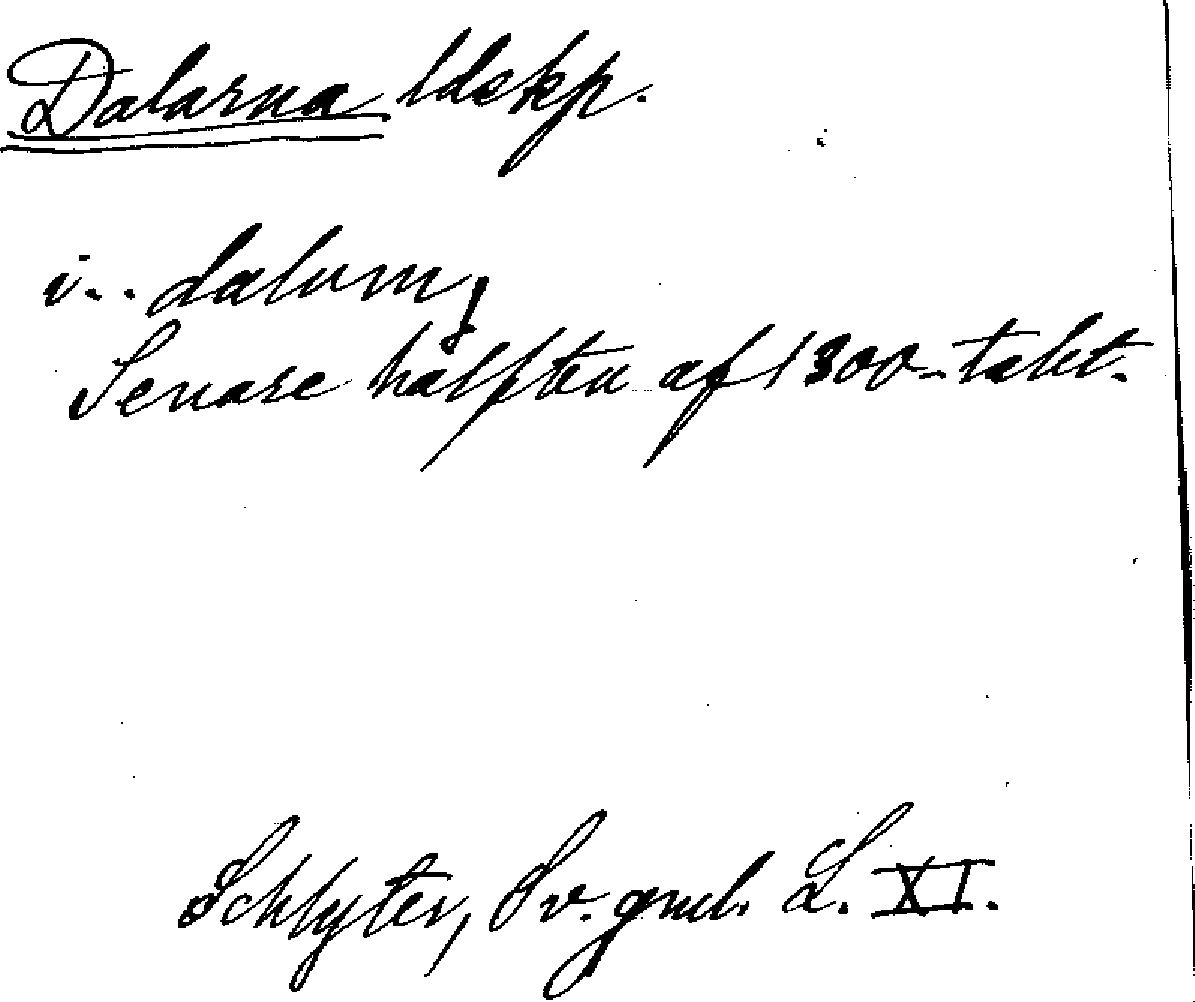 Dalarna ldskp.
i.. dalum,
Senare hälften af 1300-talet.
Schlyter, Sv. gml. L. XI.